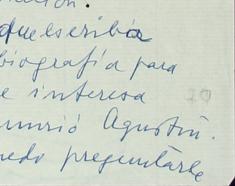 quel escribía
biografía para
e interesa
murió Agustín.
uedo preguntarle